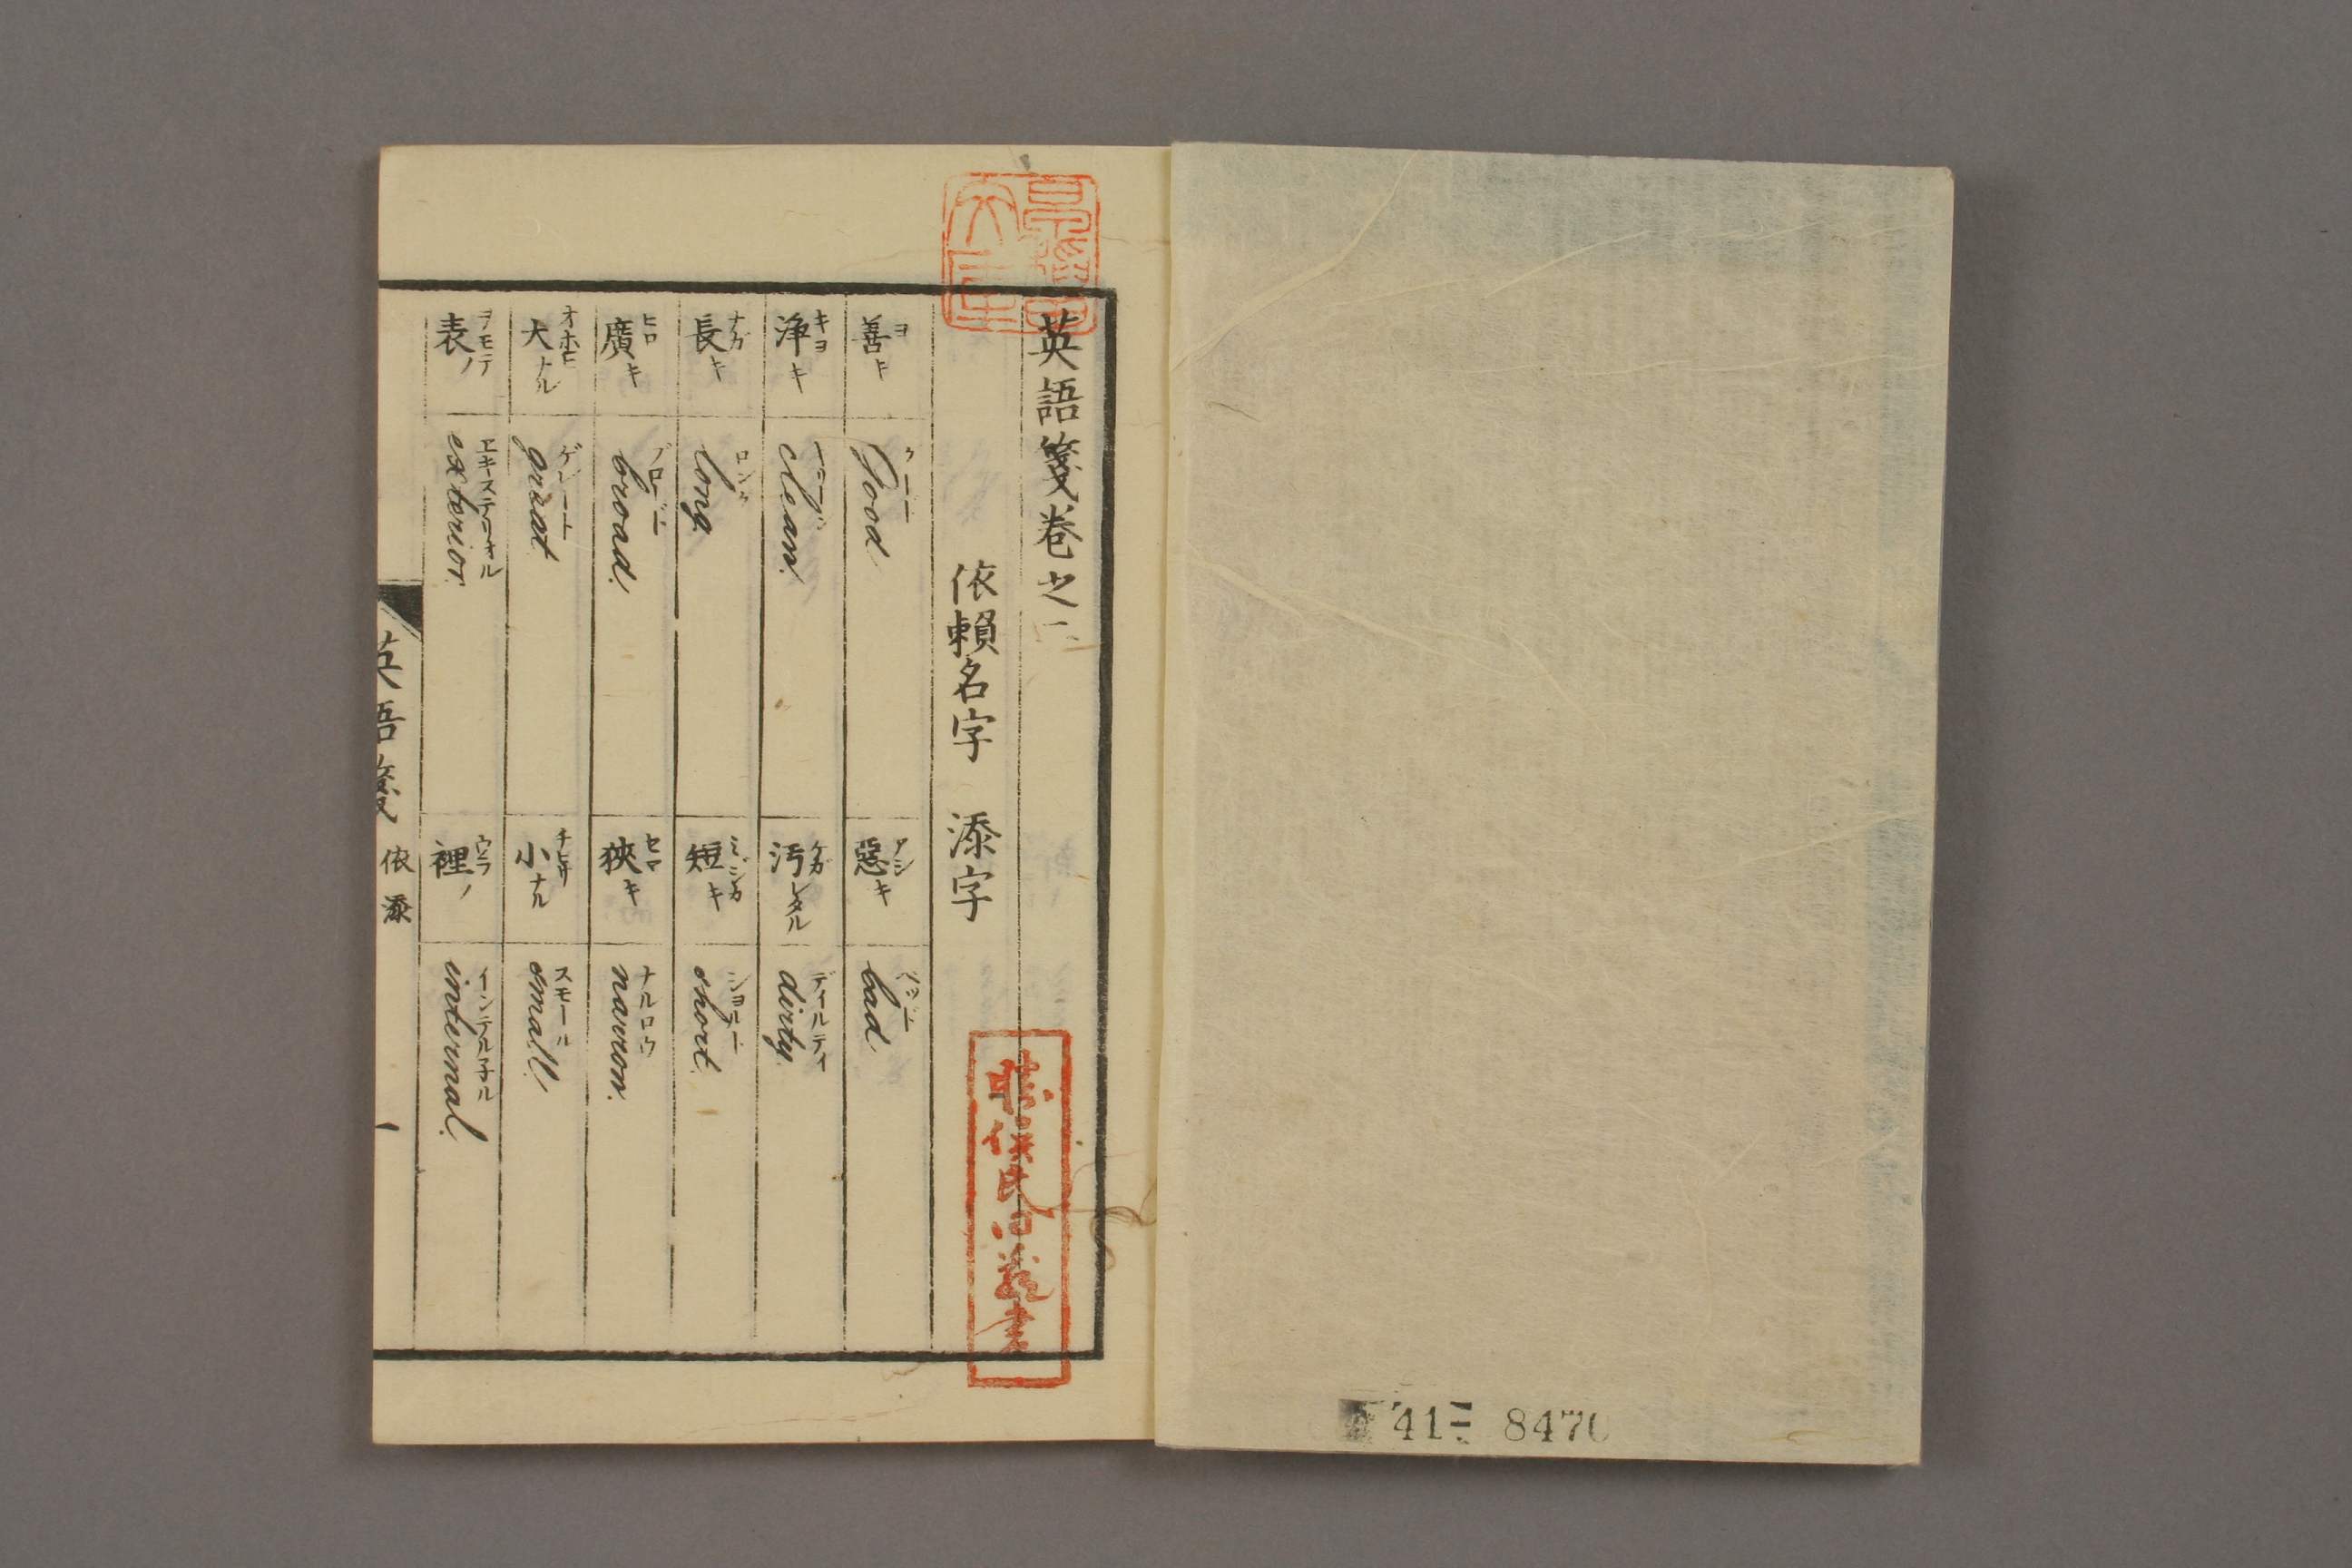 英語箋卷之一
依賴名字 添字
善キ ヨ
Good グード
惡キ アシ
bad バット
淨キ キヨ
clean.
汚レタル ケガ
dirty. ディルティ
長キ ナガ
long ロング
短キ ミジカ
short. ショルト
廣キ ヒロ
broad. ブロード
狹キ セマ
narrow. ナルロウ
大ナル オホヒ
great ゲレート
小ナル チヒサ
small. スモール
表ノ ヲモテ
exterior. エキステリオル
裡ノ ウラ
internal. インテルナル
英語箋 依添 一
41 8470